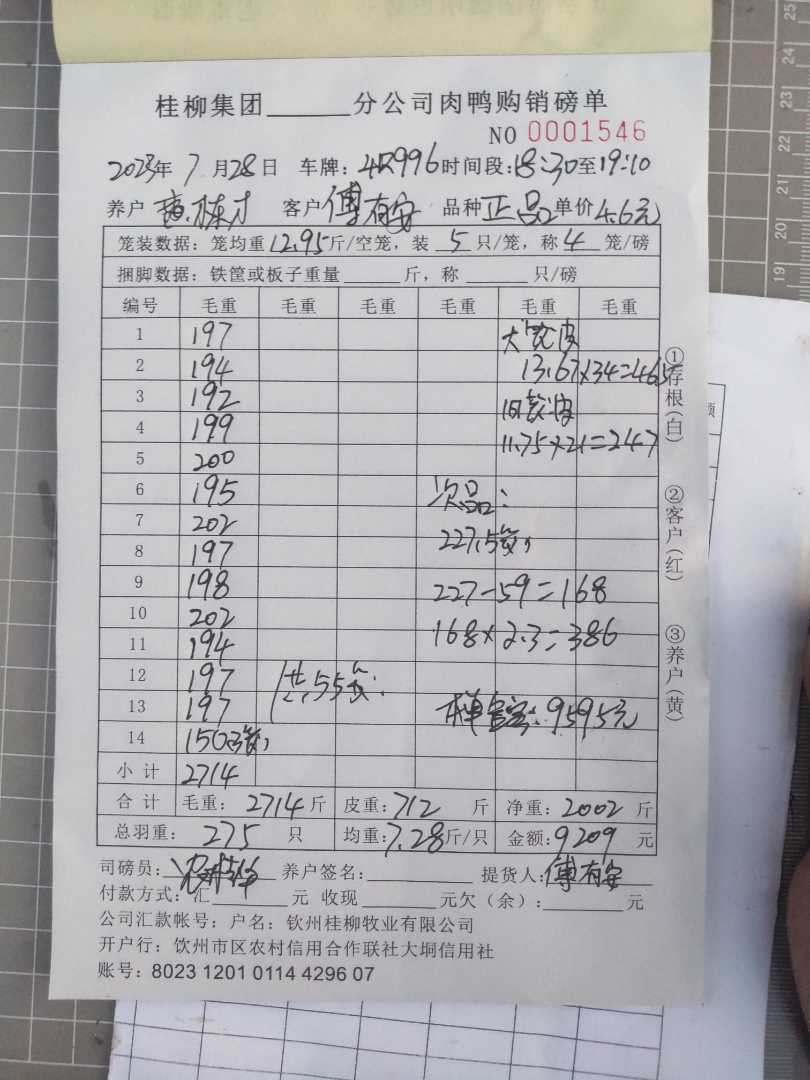 桂柳集团______分公司肉鸭购销磅单
NO 0001546
2023年7月28日 车牌: 4D996 时间段: 18:30至19:10
养户 黄栋才 客户 傅有安 品种 正品 单价 4.6元
笼装数据: 笼均重 12.95 斤/空笼, 装 5 只/笼, 称 4 笼/磅
捆脚数据: 铁筐或板子重量______斤, 称______只/磅
编号 毛重 毛重 毛重 毛重 毛重 毛重
1 197 大笼皮
2 194 13.67×34=465
3 192 旧笼皮
4 199 11.75×21=247
5 200
6 195 次品:
7 202 227,5笼,
8 197
9 198 227-59=168
10 202 168×2.3=386
11 194
12 197 共55笼:
13 197 9595元
14 150,3笼,
小计 2714
合计 毛重: 2714 斤 皮重: 712 斤 净重: 2002 斤
总羽重: 275 只 均重: 7.28 斤/只 金额: 9209 元
司磅员: 养户签名: 提货人: 傅有安
付款方式: 汇______元 收现______元欠(余):______元
公司汇款帐号: 户名: 钦州桂柳牧业有限公司
开户行: 饮州市区农村信用合作联社大垌信用社
账号: 8023 1201 0114 4296 07
①存根(白)
②客户(红)
③养户(黄)